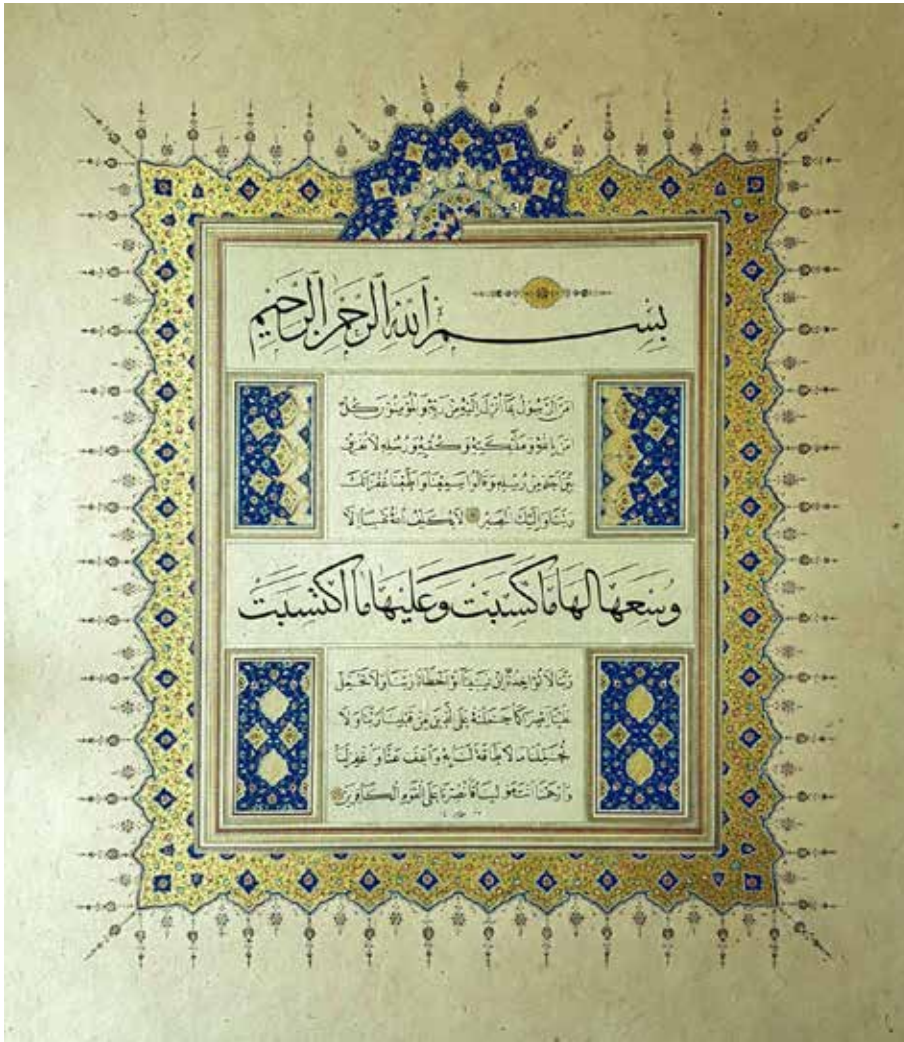 بِسْمِ ٱللّٰهِ ٱلرَّحْمٰنِ ٱلرَّحِيمِ
اٰمَنَ الرَّسُولُ بِمَا اُنْزِلَ اِلَيْهِ مِنْ رَبِّهِ وَالْمُؤْمِنُونَ كُلٌّ
اٰمَنَ بِاللّٰهِ وَمَلٰٓئِكَتِهِ وَكُتُبِهِ وَرُسُلِهِ لَا نُفَرِّقُ
بَيْنَ اَحَدٍ مِنْ رُسُلِهِ وَقَالُوا سَمِعْنَا وَاَطَعْنَا غُفْرَانَكَ
رَبَّنَا وَاِلَيْكَ الْمَصِيرُ لَا يُكَلِّفُ اللّٰهُ نَفْسًا اِلَّا
وُسْعَهَا لَهَا مَا كَسَبَتْ وَعَلَيْهَا مَا اكْتَسَبَتْ
رَبَّنَا لَا تُؤَاخِذْنَا اِنْ نَسِينَا اَوْ اَخْطَأْنَا رَبَّنَا وَلَا تَحْمِلْ
عَلَيْنَا اِصْرًا كَمَا حَمَلْتَهُ عَلَى الَّذِينَ مِنْ قَبْلِنَا رَبَّنَا وَلَا
تُحَمِّلْنَا مَا لَا طَاقَةَ لَنَا بِهِ وَاعْفُ عَنَّا وَاغْفِرْ لَنَا
وَارْحَمْنَا اَنْتَ مَوْلٰينَا فَانْصُرْنَا عَلَى الْقَوْمِ الْكَافِرِينَ